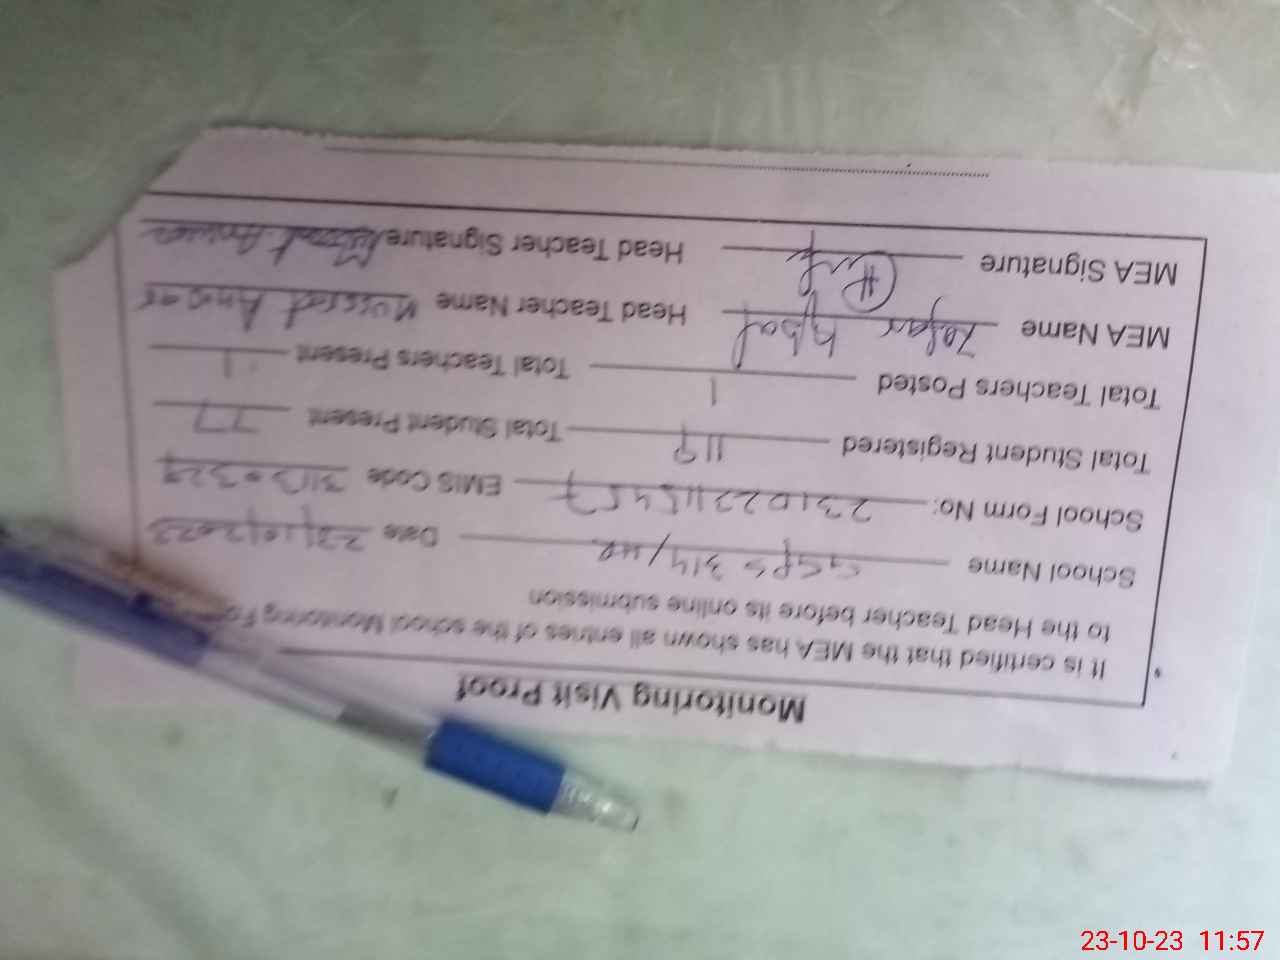 Monitoring Visit Proof
It is certified that the MEA has shown all entries of the school Monitoring Fo
to the Head Teacher before its online submission
School Name GGPS 314/HR Date 23/10/2023
School Form No: 231023115457 EMIS Code
Total Student Registered 119 Total Student Present 77
Total Teachers Posted 1 Total Teachers Present 1
MEA Name Zafar Iqbal Head Teacher Name Mussrat Anwar
MEA Signature Head Teacher Signature Mussrat Anwar
23-10-23 11:57